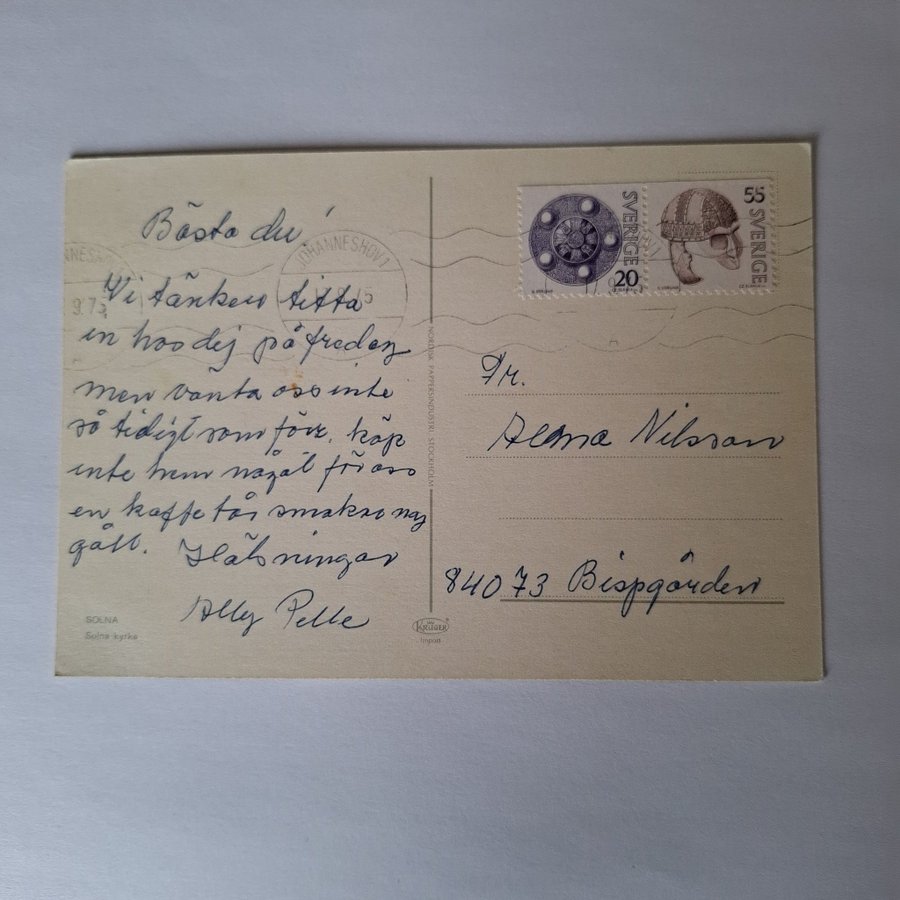 Bästa du!
Vi tänker titta
in hos dej på fredag
men vänta oss inte
så tidigt som förr. köp
inte hem något för oss
en kaffetår smakar nog
gått. Hälsningar
Ally Pelle
SOLNA
Solna kyrka
JOHANNESHOV 1
9.75
NORDISK PAPPERSINDUSTRI, STOCKHOLM
KRÜGER
Import
SVERIGE
20
55
SVERIGE
Fr.
Alma Nilsson
84073 Bispgården